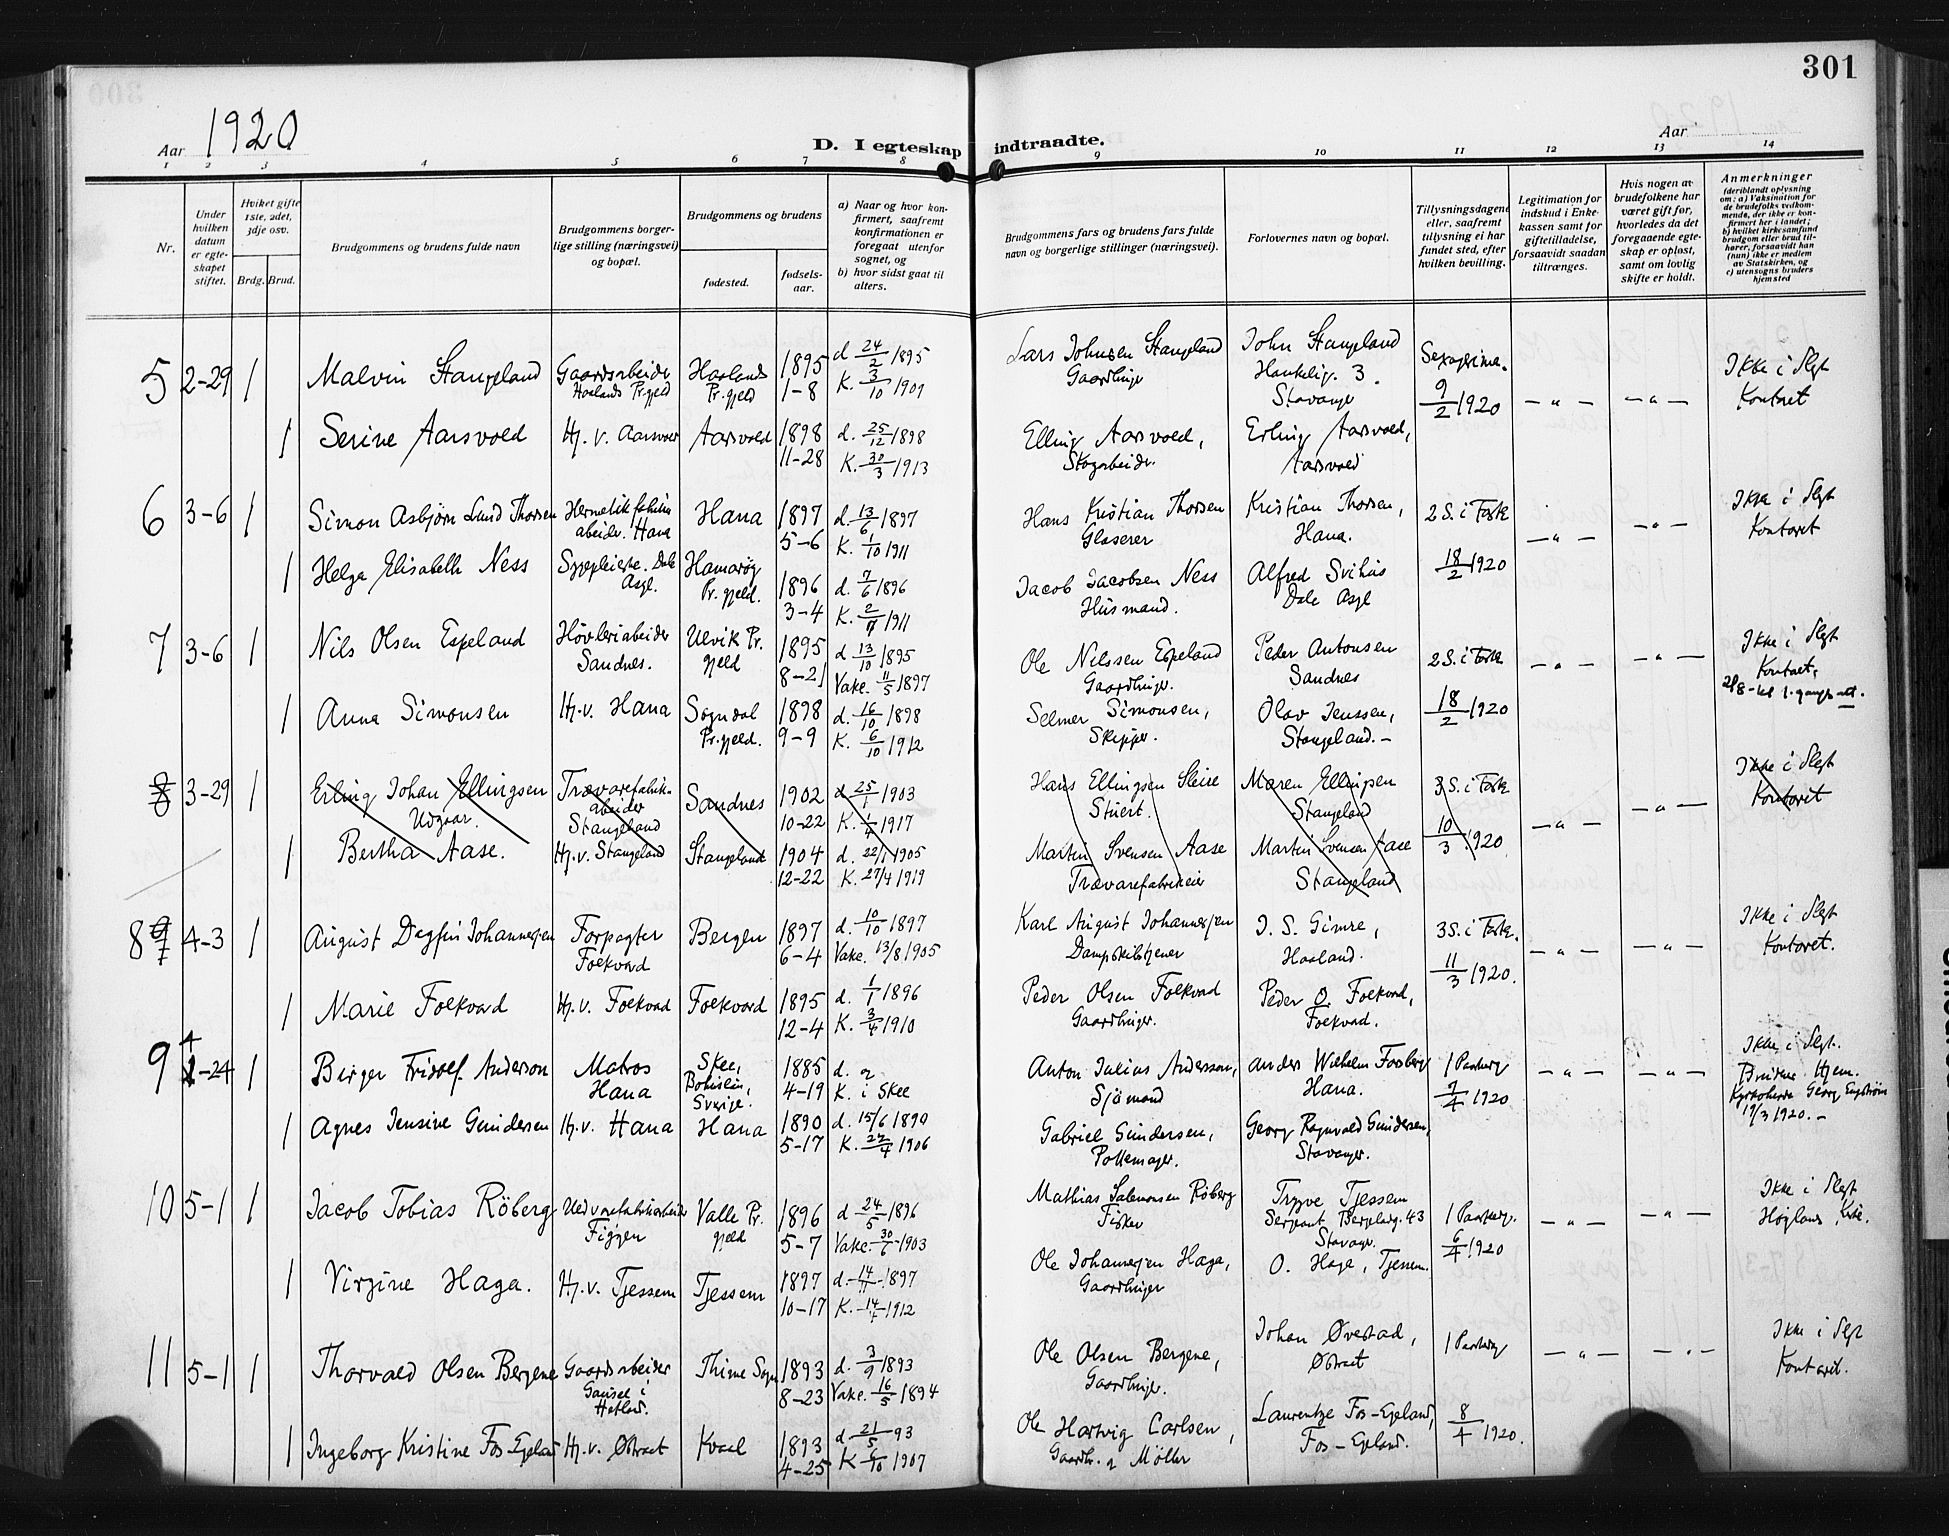 301
Aar 1920
D. I egteskap indtraadte.
Aar
1 2 3 4 5 6 7 8 9 10 11 12 13 14
Nr.
Under hvilken datum er egteskapet stiftet.
Hviket gifte 1ste, 2det, 3dje osv.
Brdg. Brud.
Brudgommens og brudens fulde navn
Brudgommens borgerlige stilling (næringsvei) og bopæl.
Brudgommens og brudens
fødested.
fødselsaar.
a) Naar og hvor konfirmert, saafremt konfirmationen er foregaat utenfor sognet, og
b) hvor sidst gaat til alters.
Brudgommens fars og brudens fars fulde navn og borgerlige stillinger (næringsvei).
Forlovernes navn og bopæl.
Tillysningsdagene eller, saafremt tillysning ei har fundet sted, efter hvilken bevilling.
Legitimation for indskud i Enkekassen samt for giftetilladelse, forsaavidt saadan tiltrænges.
Hvis nogen av brudefolkene har været gift før, hvorledes da det foregaaende egteskap er opløst, samt om lovlig skifte er holdt.
Anmerkninger (deriblandt oplysning om: a) Vaksination for de brudefolks vedkommende, der ikke er konfirmert her i landet; b) hvilket kirkesamfund brudgom eller brud tilhører, forsaavidt han (hun) ikke er medlem av Statskirken, og c) utensogns bruders hjemsted
5 2-29 1 Malvin Stangeland Gaardsarbeider Haalands Pr.gjeld Haalands Pr.gjeld 1895 1-8 d 24/2 1895 K. 3/10 1909 Lars Johnsen Stangeland Gaardbruger John Stangeland Haukelig. 3. Stavanger Sexagesima. 9/2 1920 - " - - " - Ikke i Slegt Kontoret
1 Serine Aarsvold Hj. v. Aarsvold Aarsvold 1898 11-28 d. 25/12 1898 K. 30/3 1913 Elling Aarsvold, Skogarbeider. Erling Aarsvold, Aarsvold
6 3-6 1 Simon Asbjørn Lund Thorsen Hermetikfabrikarbeider. Hana Hana 1897 5-6 d. 13/6 1897 K. 1/10 1911 Hans Kristian Thorsen Glaserer Kristian Thorsen, Hana. 2 S. i Faste 18/2 1920 - " - - " - Ikke i Slegt Kontoret
1 Helga Elisabeth Ness Sygepleierske. Dale Asyl. Hamarøy Pr.gjeld. 1896 3-4 d. 7/6 1896 K. 2/7 1911 Jacob Jacobsen Ness Husmand. Alfred Svihus Dale Asyl
7 3-6 1 Nils Olsen Espeland Høvleriabeider Sandnes. Ulvik Pr.gjeld 1895 8-21 d 13/10 1895 Vakc. 11/5 1897 Ole Nilssen Espeland Gaardbruger. Peder Antonsen Sandnes 2 S. i Faste 18/2 1920 - " - - " - Ikke i Slegt Kontoret,
1 Anna Simonsen Hj. v. Hana Sogndal Pr.gjeld. 1898 9-9 d. 16/10 1898 K. 6/10 1912 Selmer Simonsen, Skipper. Olav Jenssen, Stangeland.-
8 3-29 1 Erling Johan Ellingsen Udgaar. Trævarefabrikabeider Stangeland Sandnes 1902 10-22 d 25/1 1903 K. 1/4 1917 Hans Ellingsen Sleire Stuert. Maren Ellingsen Stangeland 3 S. i Faste 10/3 1920 - " - - " - Ikke i Slegt Kontoret
1 Bertha Aase. Hj. v. Stangeland Stangeland 1904 12-22 d. 22/1 1905 K. 27/4 1919 Martin Svensen Aase Trævarefabrikeier Martin Svensen Aase Stangeland
8 4-3 1 August Dagfin Johannesen Forpagter Foekvard Bergen 1897 6-4 d. 10/10 1897 Vakc. 13/8 1905 Karl August Johannesen Dampskibstjener J. S. Gimre, Haaland. 3 S. i Faste. 11/3 1920. - " - - " - Ikke i Slegt Kontoret.
1 Marie Foekvard Hj. v. Foekvad Foekvord 1895 12-4 d. 1/1 1896 K. 3/4 1910 Peder Olsen Foekvad Gaardbruger. Peder O. Foekvad, Foekvad.
9 4-24 1 Birger Fridolf. Anderson Matros Hana Skee, Bohuslen, Sverige. 1885 4-19 d. o K. i Skee Anton Julius Andersson, Sjömand Anders Wilhelm Forsberg Hana. 1 Paaskedg 7/4 1920 - " - - " - Ikke i Slegt. Brudens Hjem. Kyrkoherde Georg Engström 19/3 1920.-
1 Agnes Jensine Gundersen Hj. v. Hana Hana 1890 5-17 d. 15/6 1890 K. 22/4 1906 Gabriel Gundersen, Pottemager. Georg Ragnvald Gundersen, Stavanger.
10 5-1 1 Jacob Tobias Röberg Uldvarefabrikarbeider Figgen Valle Pr.gjeld 1896 5-7 d 24/5 1896 Vakc. 30/6 1903 Mathias Salomonsen Röberg Fisker Trygve Tjessem Sergeant Bergelandg. 43 Stavanger. 1 Paaskedg. 6/4 1920 - " - - " - Ikke i Slegt Høylands Kirke.
1 Virgine Haga. Hj. v. Tjessem Tjessem 1897 10-17 d. 14/11 1897 K. 14/4 1912 Ole Johannesen Haga, Gaardbruger O. Haga, Tjessem.
11 5-1 1 Thorvald Olsen Bergene Gaardsarbeider Gausel i Hetland. Thime Sogn 1893 8-23 d. 3/9 1893 Vakc. 16/5 1894 Ole Olsen Bergene, Gaardbruger. Johan Øvestad, Østraat 1 Paaskedg 8/4 1920. - " - - " - Ikke i Slegt Kontoret.
1 Ingeborg Kristine Fos-Egeland Hj. v. Østraat Kvaal 1893 4-25 d 21/5 93 K 6/10 1907 Ole Hartvig Carlsen, Gaardb. og Møller Laurentze Fos-Egeland, Fos-Egeland.